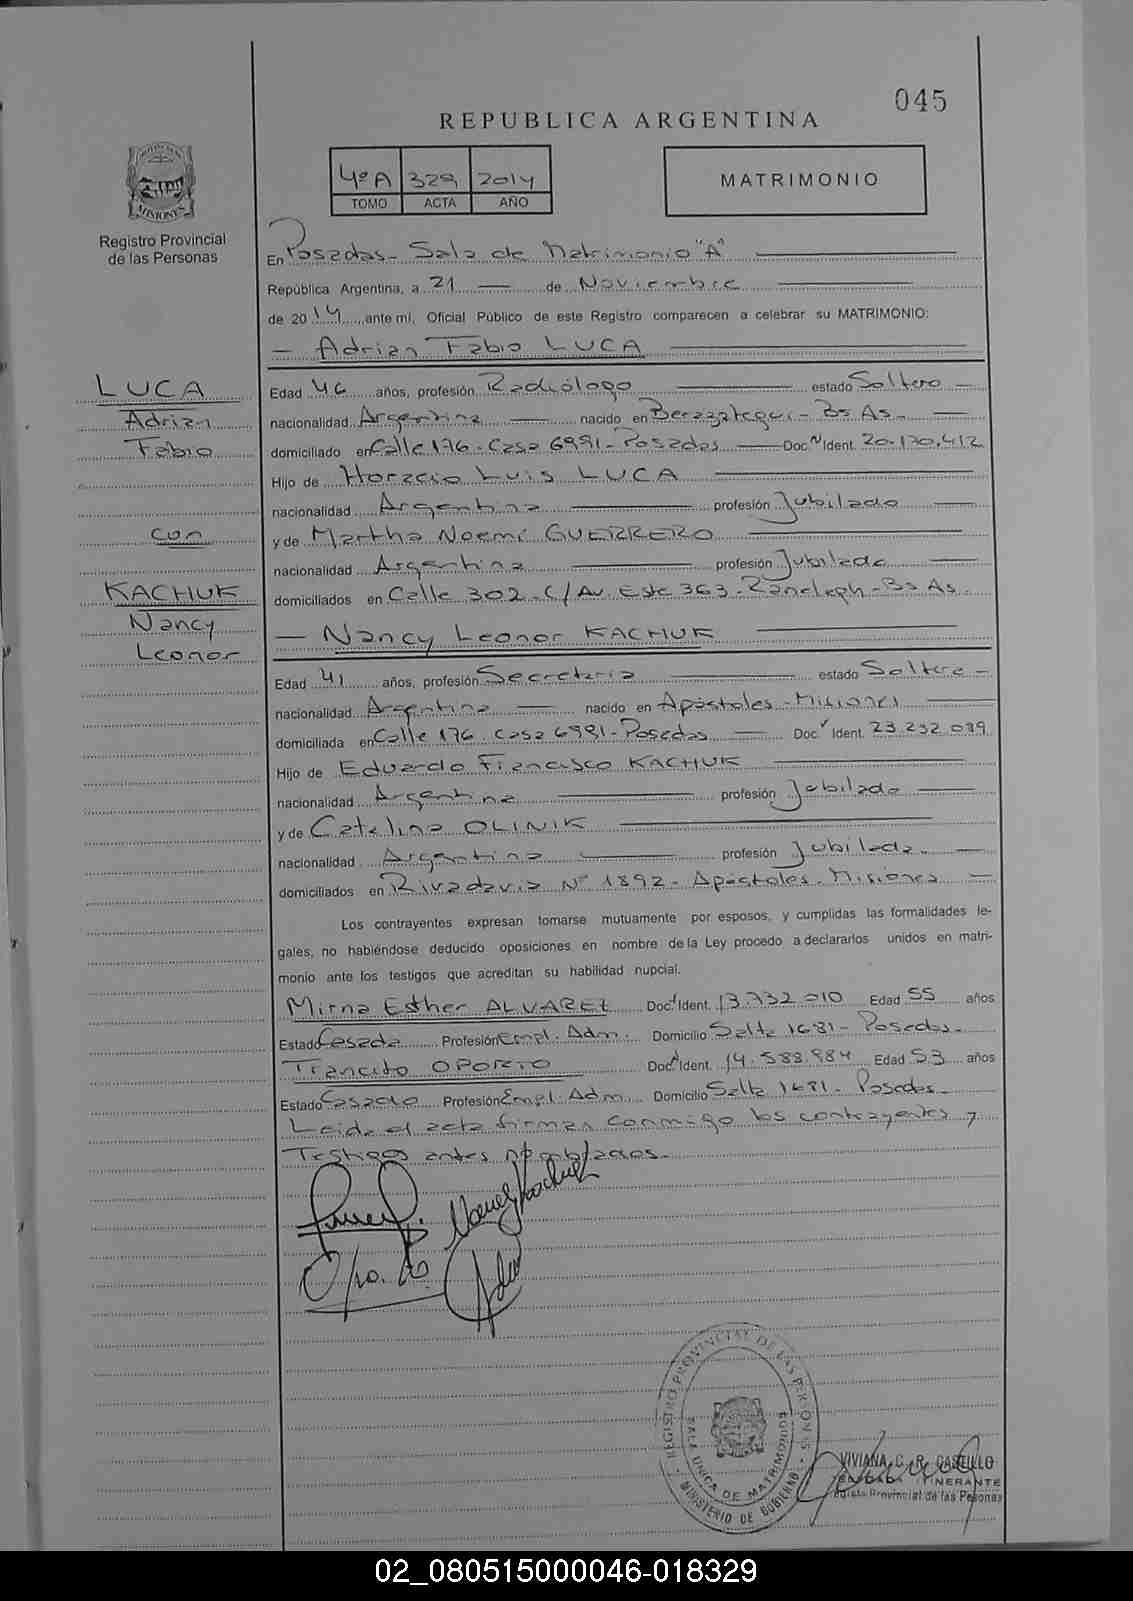 045
REPUBLICA ARGENTINA
4º A 329 2014
TOMO ACTA AÑO
MATRIMONIO
MISIONES
Registro Provincial
de las Personas
En Posadas - Sala de Matrimonio "A"
República Argentina, a 21 de Noviembre
de 2014, ante mí, Oficial Público de este Registro comparecen a celebrar su MATRIMONIO:
— Adrian Fabio LUCA
LUCA
Adrian
Fabio
con
KACHUK
Nancy
Leonor
Edad 46 años, profesión Radiólogo estado Soltero —
nacionalidad Argentina nacido en Berazategui - Bs As -
domiciliado en Calle 176 - Casa 6981 - Posadas Doc. Ident. 20.170.412
Hijo de Horacio Luis LUCA
nacionalidad Argentina profesión Jubilado
y de Martha Noemí GUERRERO
nacionalidad Argentina profesión Jubilada
domiciliados en Calle 302 - C/ Av. Este 363 - Ranelagh - Bs As.
— Nancy Leonor KACHUK
Edad 41 años, profesión Secretaria estado Soltera —
nacionalidad Argentina nacido en Apóstoles - Misiones
domiciliada en Calle 176 Casa 6981 - Posadas Doc. Ident. 23.232.039
Hijo de Eduardo Francisco KACHUK
nacionalidad Argentina profesión Jubilado
y de Catalina OLINIK
nacionalidad Argentina profesión Jubilada.
domiciliados en Rivadavia Nº 1892 - Apóstoles - Misiones —
Los contrayentes expresan tomarse mutuamente por esposos, y cumplidas las formalidades le-
gales, no habiéndose deducido oposiciones en nombre de la Ley procedo a declararlos unidos en matri-
monio ante los testigos que acreditan su habilidad nupcial.
Mirna Esther ALVAREZ Doc. Ident. 13.732.010 Edad 55 años
Estado Casada Profesión Empl. Adm. Domicilio Salta 1681 - Posadas -
Tránsito OPORTO Doc. Ident. 14.588.984 Edad 53 años
Estado Casado Profesión Empl. Adm. Domicilio Salta 1681 - Posadas -
Leida el acta firman conmigo los contrayentes y
Testigos antes nombrados -
REGISTRO PROVINCIAL DE LAS PERSONAS
SALA UNICA DE MATRIMONIOS
MINISTERIO DE GOBIERNO
VIVIANA C. R. CASTILLO
ITINERANTE
Registro Provincial de las Personas
02_080515000046-018329